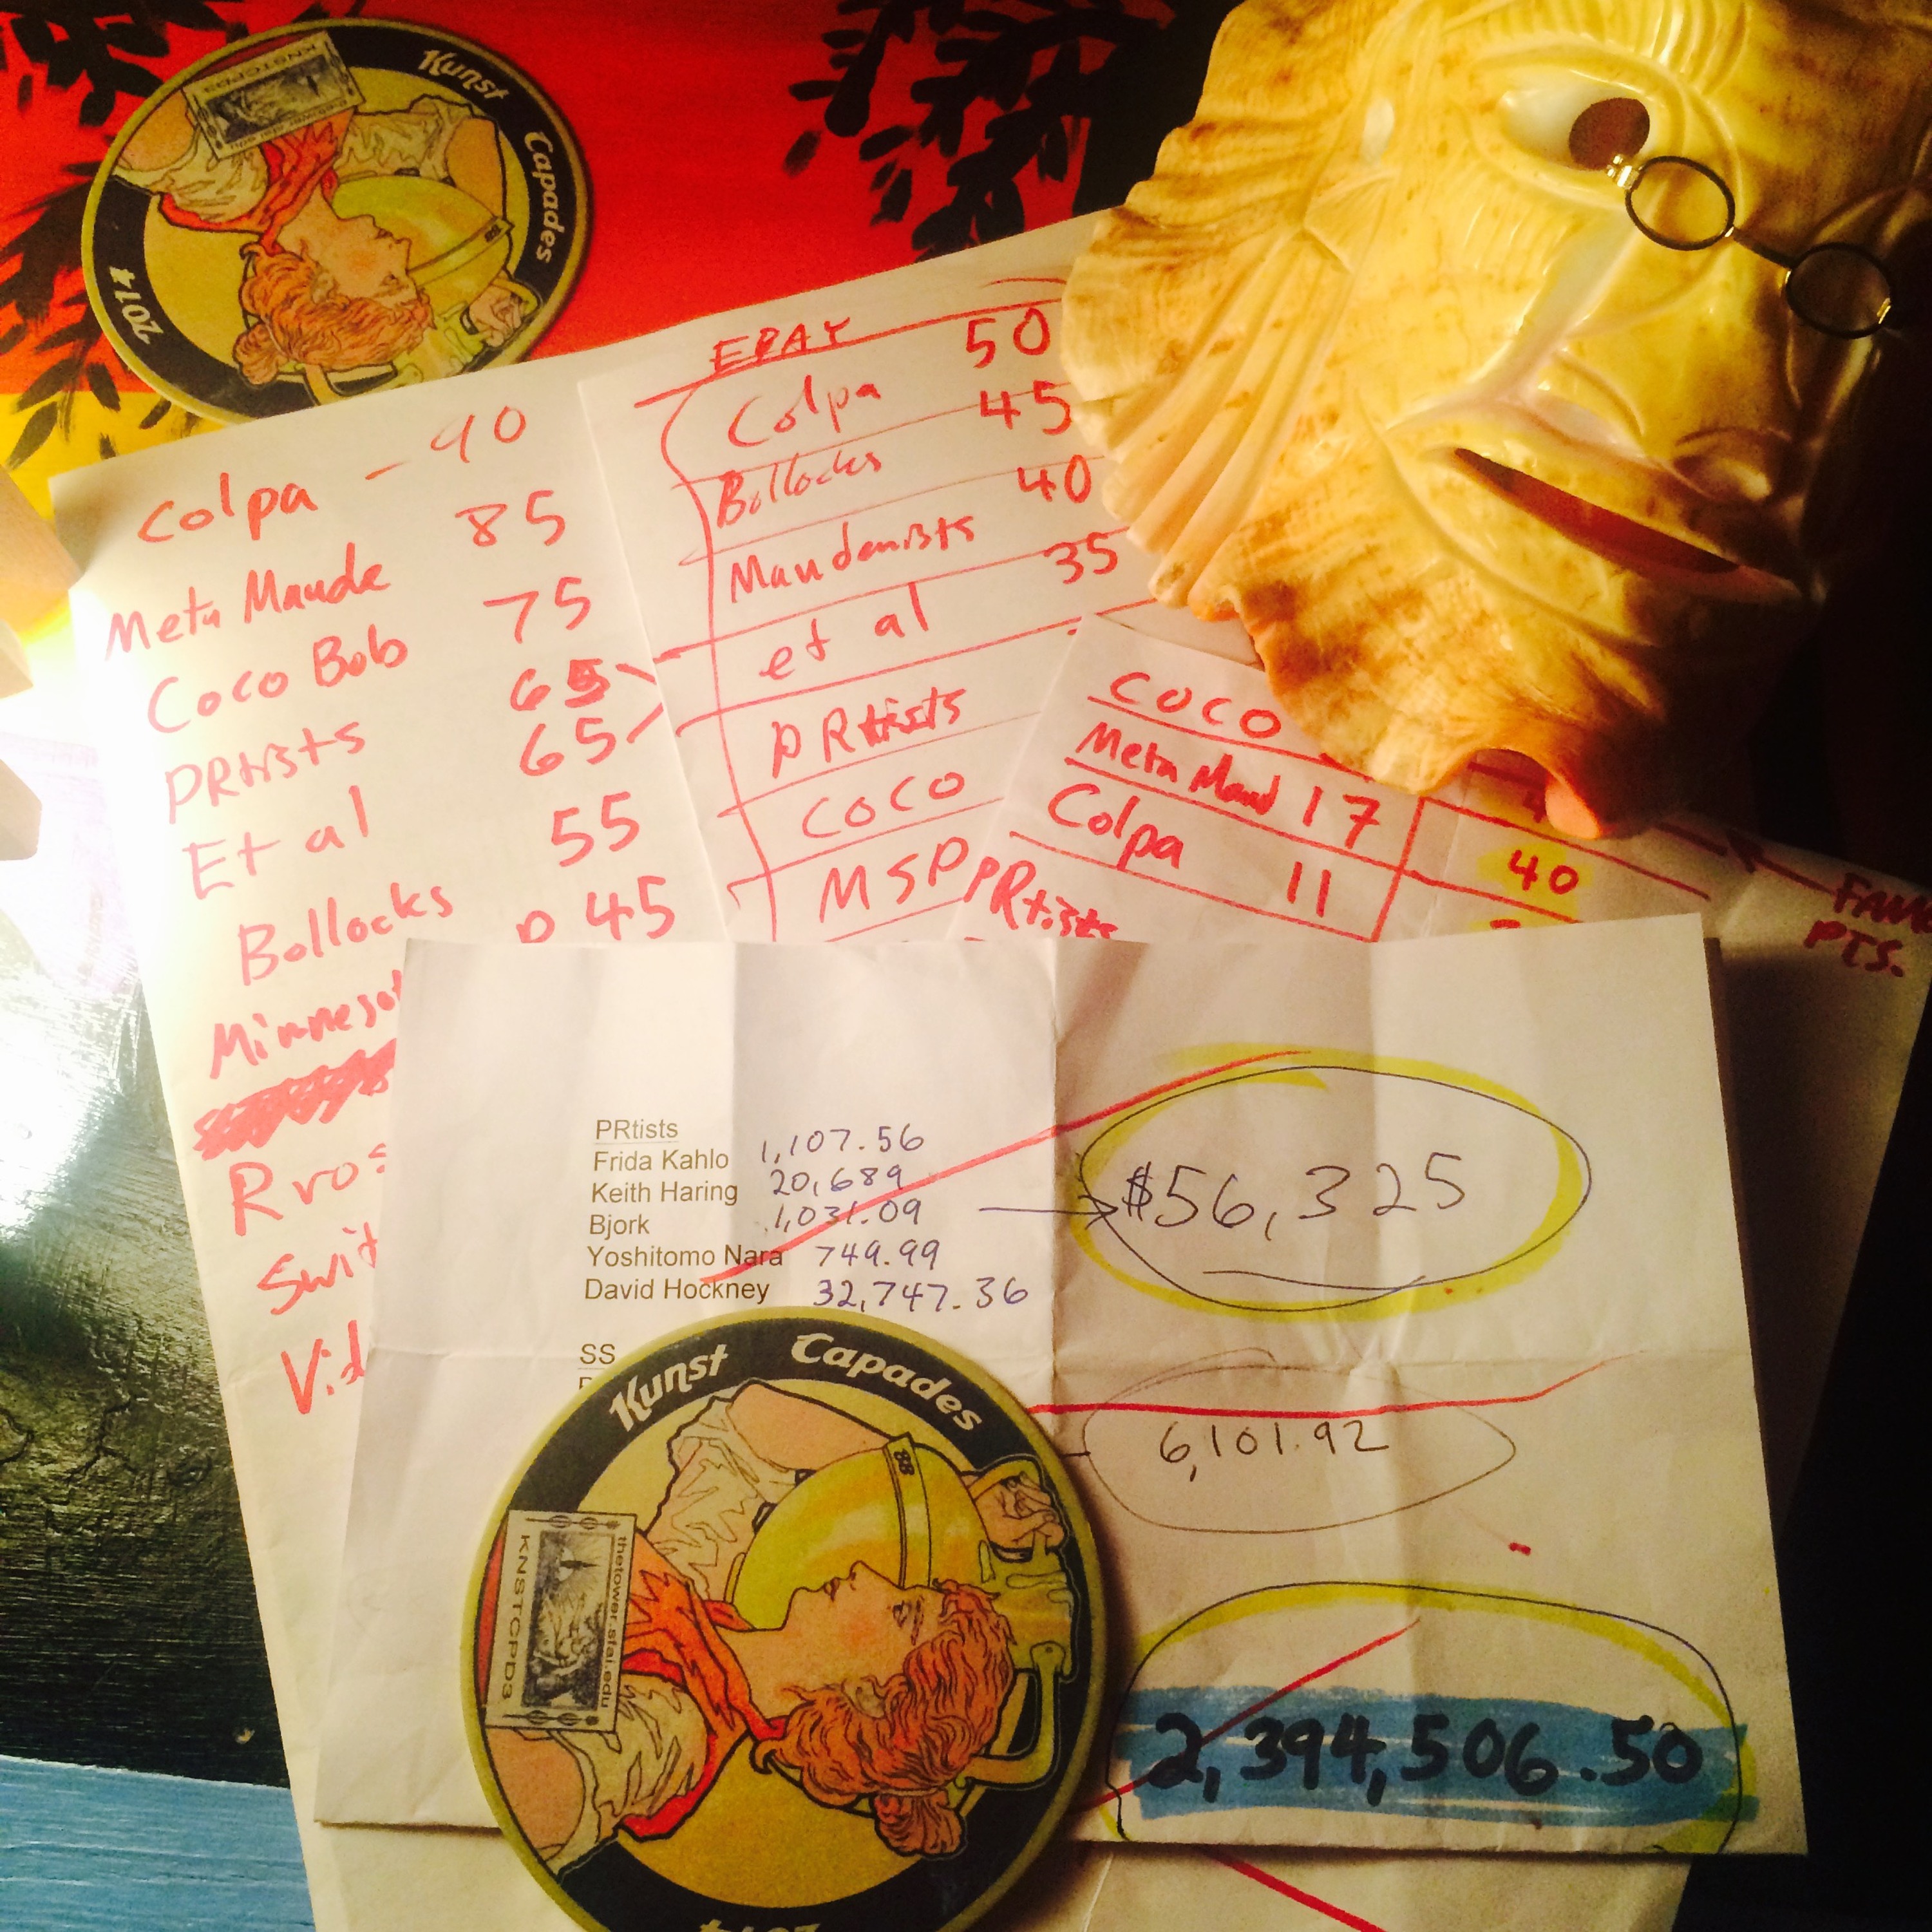 Kunst Capades
2014
KNSTCPD3
Colpa - 90
Meta Maude 85
Coco Bob 75
PRtists 65
Et al 65
Bollocks 55
45
Rros
Swit
Vid
EBAY
Colpa 50
Bollocks 45
Maudernists 40
et al 35
PRtists
COCO
MSP
COCO
Meta Maud 17
Colpa 11
PRtists
40
PTS.
PRtists
Frida Kahlo 1,107.56
Keith Haring 20,689
Bjork 1,031.09
Yoshitomo Nara 749.99
David Hockney 32,747.36
$56,325
SS
6,101.92
2,394,506.50
Kunst Capades
88
thetower.sfai.edu
KNSTCPD3